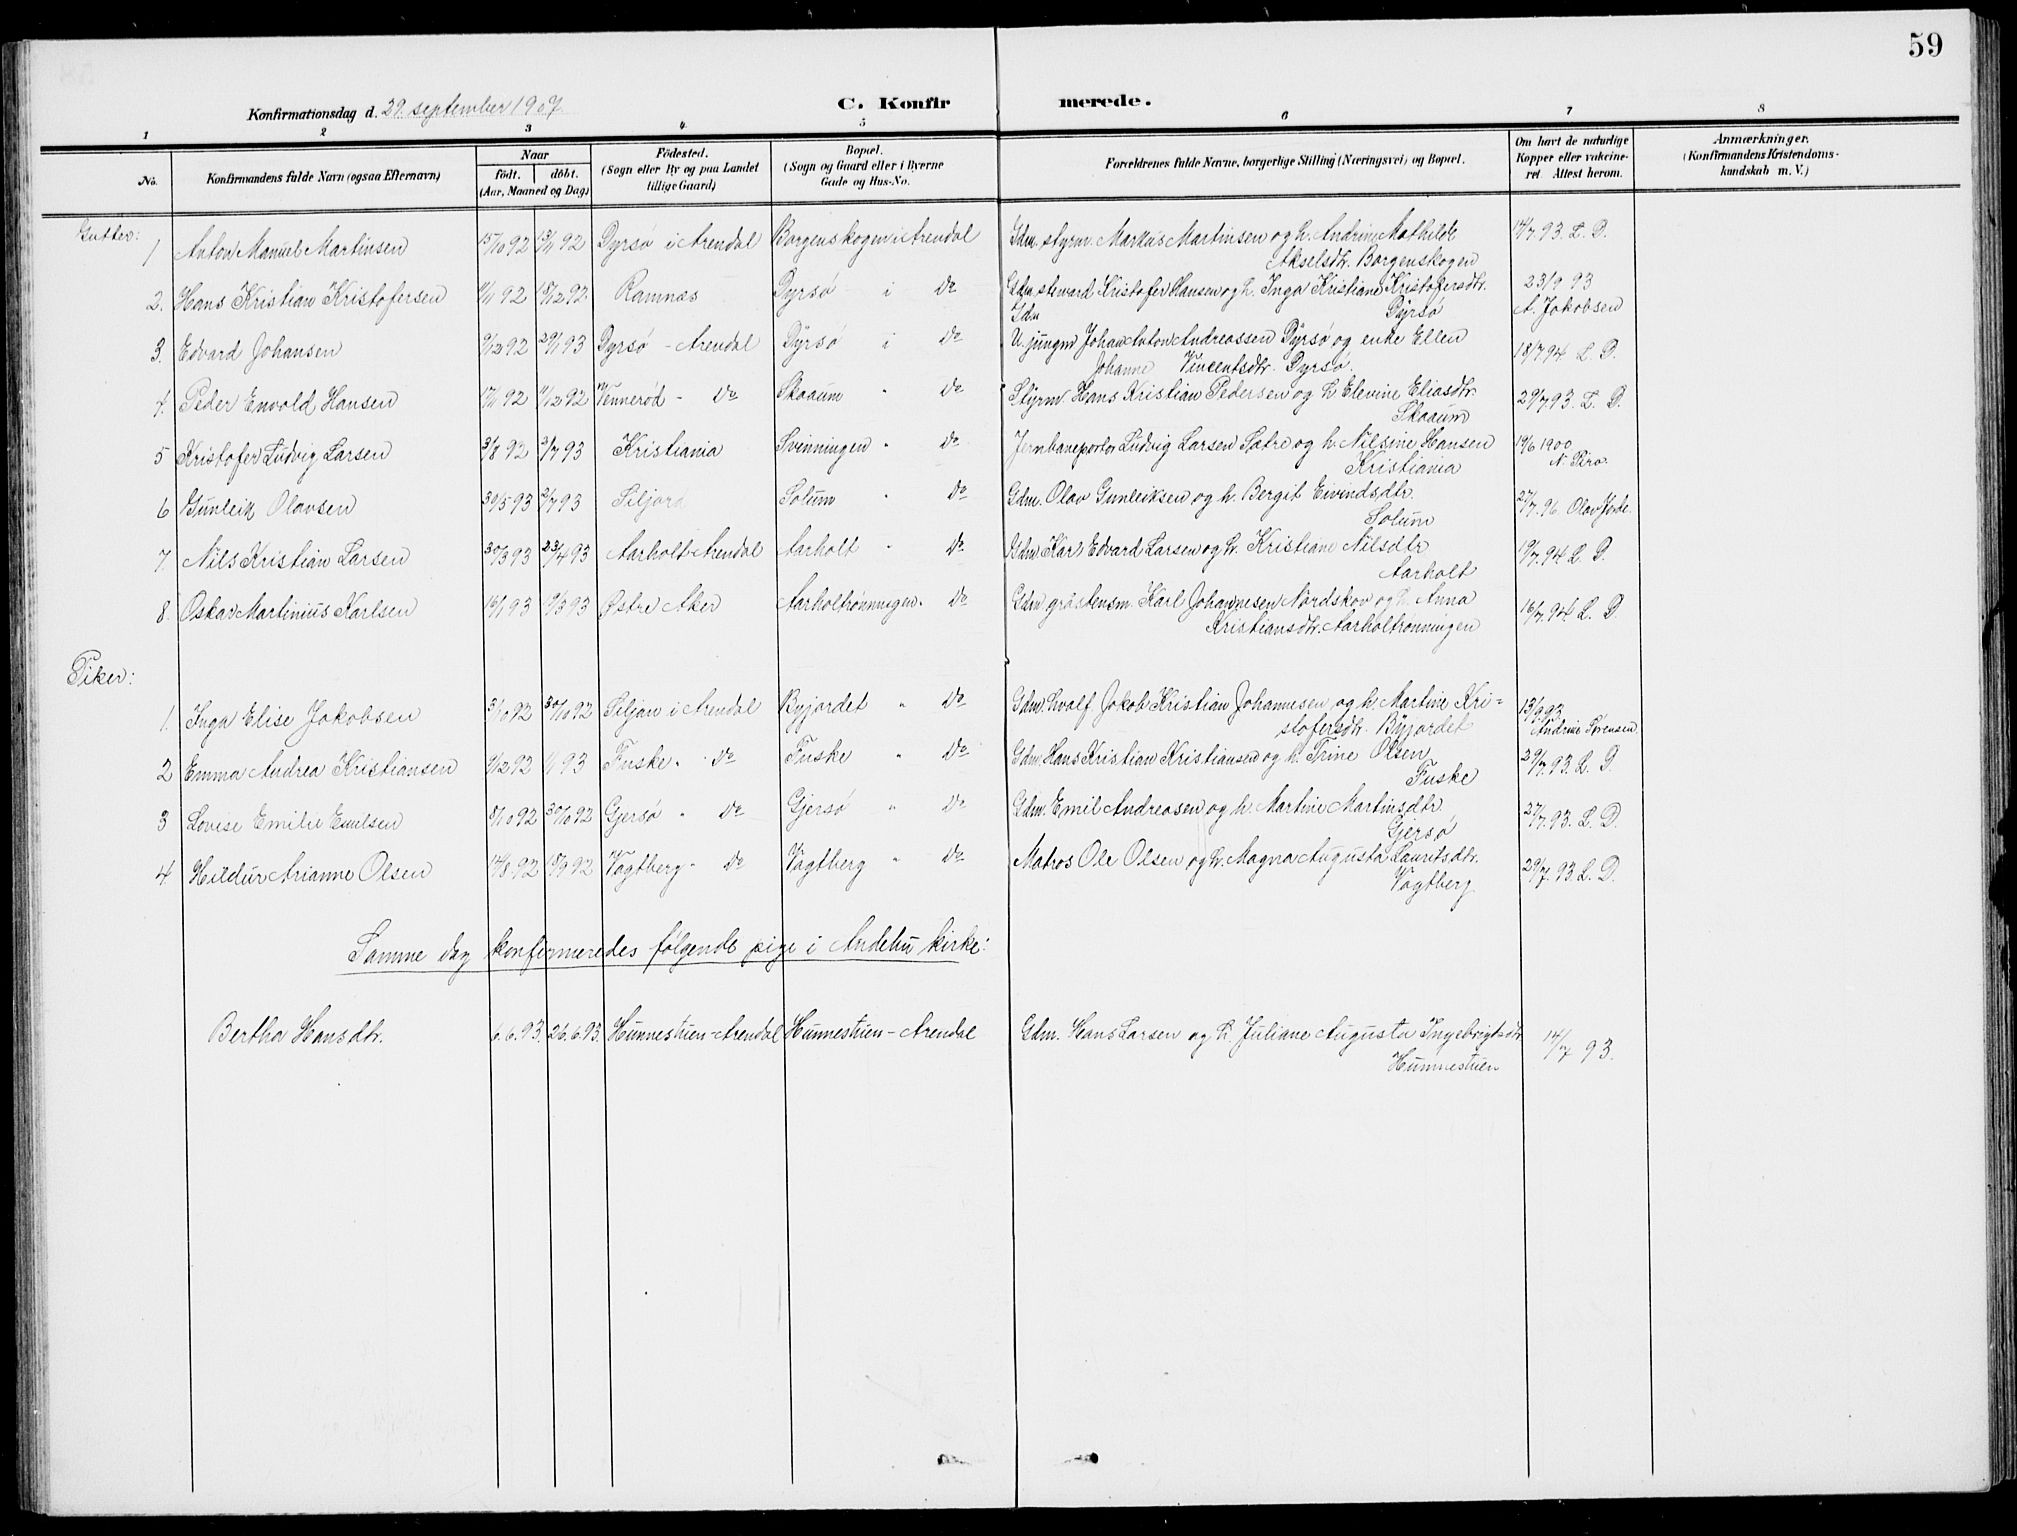 59
Konfirmationsdag d. 29. september 1907.
C. Konfirmerede.
1 2 3 4 5 6 7 8
No.
Konfirmandens fulde Navn (ogsaa Efternavn)
Naar
födt. döbt.
(Aar, Maaned og Dag)
Födested.
(Sogn eller By og paa Landet
tillige Gaard)
Bopæl.
(Sogn og Gaard eller i Byerne
Gade og Hus-No.
Forældrenes fulde Navne, borgerlige Stilling (Næringsvei) og Bopæl.
Om havt de naturlige
Kopper eller vakcine-
ret. Attest herom.
Anmærkninger.
(Konfirmandens Kristendoms-
kundskab m. V.)
Gutter:
1 Anton Manuel Martinsen 15/10 92 13/11 92 Dyrsø i Arendal Borgenskogen i Arendal Gdm. styrm. Markus Martinsen og h. Andrine Mathilde 14/7.93. L. D.
Akselsdtr. Borgenskogen
2. Hans Kristian Kristofersen 11/11 92 18/12 92. Ramnæs Dyrsø i do Gdm. steward Kristofer Hansen og h. Inga Kristiane Kristofersdtr. 23/9 93
Dyrsø A. Jakobsen
Gdm
3. Edvard Johansen 9/12 92 29/1 93 Dyrsø - Arendal Dyrsø i do U. jungm Johan Anton Andreassen Dyrsø og enke Ellen 18/7 94 L. D.
Johanne Vincentsdtr. Dyrsø.
4. Peder Envold Hansen 17/11 92 11/12 92 Vennerød - do Skaaum " do Styrm. Hans Kristian Pedersen og h Elevine Eliasdtr. 29/7.93. L. D.
Skaaum
5 Kristofer Ludvig Larsen 31/8 92 2/7 93 Kristiania Svinningen " do Jernbaneportør Ludvig Larsen Sætre og h. Nilsine Hansen 19/6 1900
Kristiania N. Piro.
6 Gunleik Olavsen 30/5 93 2/7 93 Siljord Solum " do Gdm. Olav Gunleiksen og h. Bergit Eivindsdtr. 27/7.96 Olav Jorde.
Solum
7. Nils Kristian Larsen 30/3 93 23/4 93 Aarholt Arendal Aarholt " do Gdm Karl Edvard Larsen og h. Kristiane Nilsdtr 19/7.94 L. D.
Aarholt
8. Oskar Martinius Karlsen 16/1 93 19/3 93 Østre Aker Aarholtrønningen. do Gdm gråstensm. Karl Johannesen Nordskov og h. Anna 16/7.94 L. D.
Kristiansdtr. Aarholtrønningen
Piker:
1. Inga Elise Jakobsen 3/10 92 30/10 92 Siljan i Arendal Byjordet " do Gdm. Svolf Jakob Kristian Johannesen og h. Martine Kri- 13/9 93
stofersdtr. Byjordet Andrine Sørensen
2 Emma Andrea Kristiansen 9/12 92 1/1 93 Fuske " do Fuske " do Gdm. Hans Kristian Kristiansen og h. Trine Olsen 29/7.93. L. D.
Fuske
3 Lovise Emilie Emilsen 8/10 92 30/10 92 Gjersø " do Gjersø " do Gdm. Emil Andreasen og h. Martine Martinsdtr 27/7.93. L. D.
Gjersø
4. Hildur Arianne Olsen 14/8 92 18/9 92 Vagtberg " do Vagtberg " do Matros Ole Olsen og h. Magna Augusta Lauritsdtr. 29/7.93. L. D.
Vagtberg
Samme dag konfirmeredes følgende pige i Andebu kirke:
Bertha Hansdtr. 6.6.93. 26.6.93. Hunnestuen - Arendal Hunnestuen - Arendal Gdm. Hans Larsen og h. Juliane Augusta Ingebrigtsdtr 14/7 93.
Hunnestuen